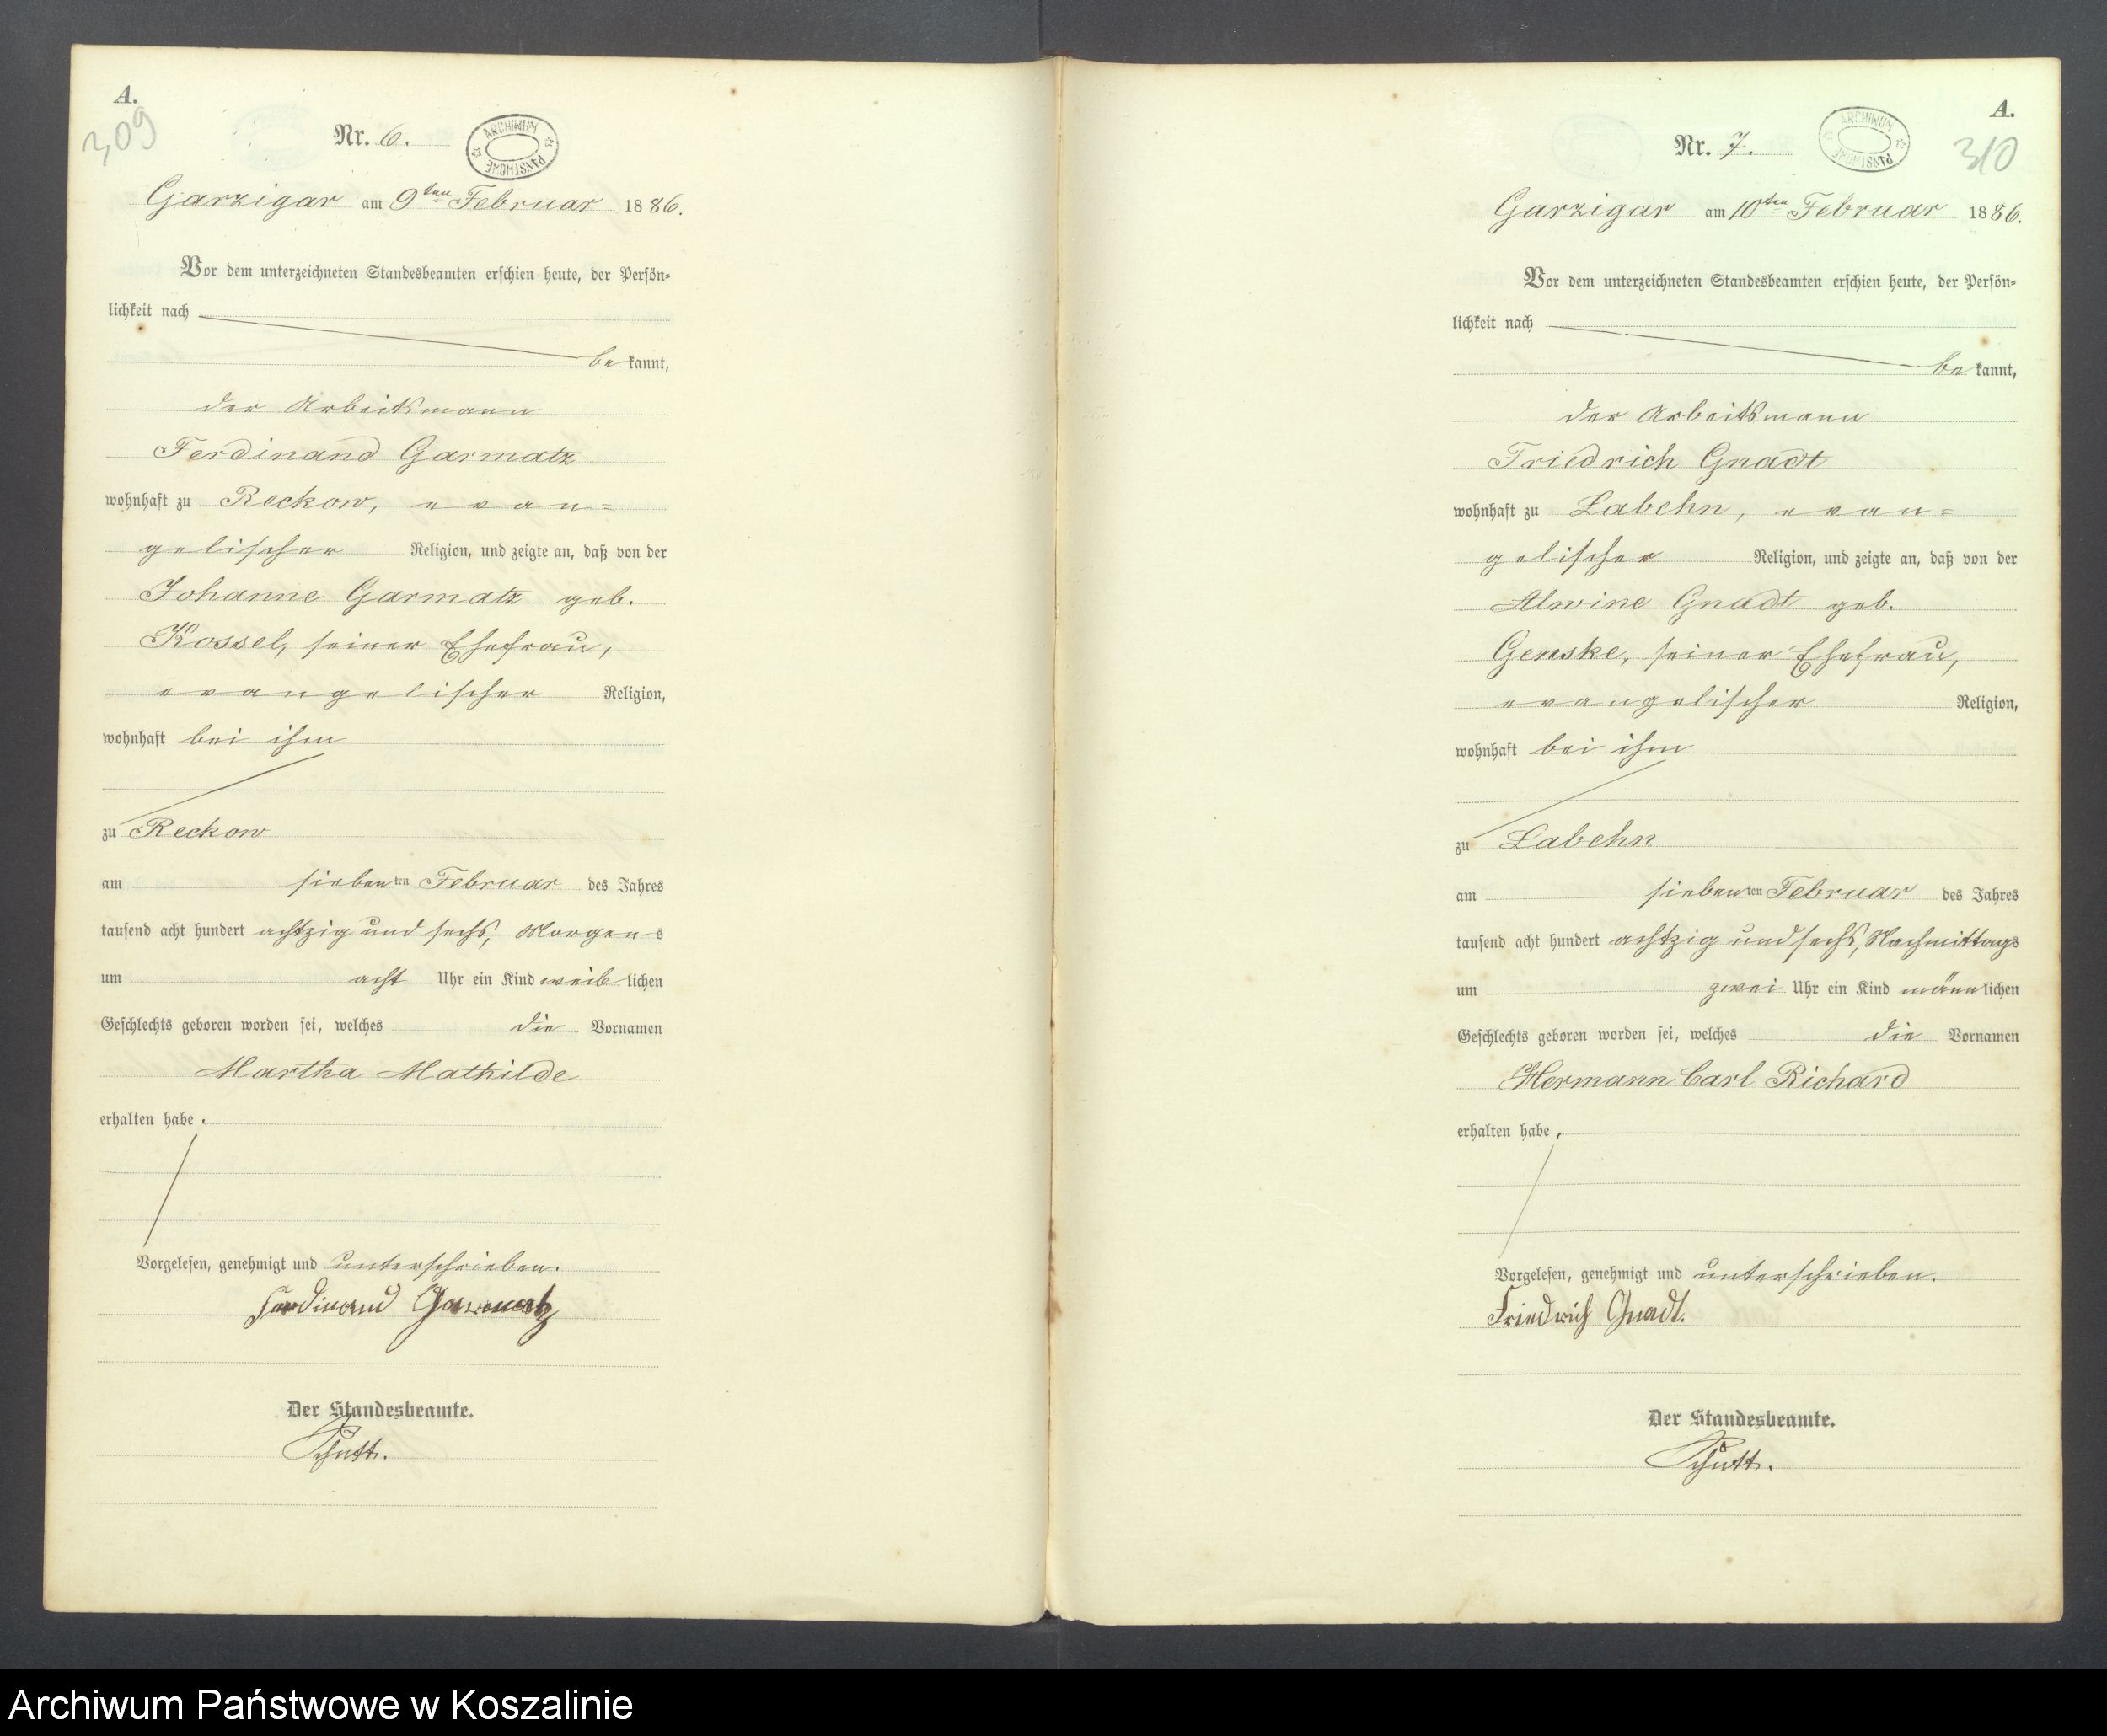 A.
309
Nr. 6.
ARCHIWUM PAŃSTWOWE
Garzigar am 9ten Februar 1886.
Vor dem unterzeichneten Standesbeamten erschien heute, der Persön-
lichkeit nach
be kannt,
der Arbeitsmann
Ferdinand Garmatz
wohnhaft zu Reckow, evan=
gelischer Religion, und zeigte an, daß von der
Johanne Garmatz geb.
Kossel, seiner Ehefrau,
evangelischer Religion,
wohnhaft bei ihm
zu Reckow
am siebenten Februar des Jahres
tausend acht hundert achtzig und sechs, Morgens
um acht Uhr ein Kind weiblichen
Geschlechts geboren worden sei, welches die Vornamen
Martha Mathilde
erhalten habe.
Vorgelesen, genehmigt und unterschrieben.
Ferdinand Garmatz
Der Standesbeamte.
Schütt.
A.
310
Nr. 7.
ARCHIWUM PAŃSTWOWE
Garzigar am 10ten Februar 1886.
Vor dem unterzeichneten Standesbeamten erschien heute, der Persön-
lichkeit nach
be kannt,
der Arbeitsmann
Friedrich Gnadt
wohnhaft zu Labehn, evan=
gelischer Religion, und zeigte an, daß von der
Alwine Gnadt geb.
Genske, seiner Ehefrau,
evangelischer Religion,
wohnhaft bei ihm
zu Labehn
am siebenten Februar des Jahres
tausend acht hundert achtzig und sechs, Nachmittags
um zwei Uhr ein Kind männlichen
Geschlechts geboren worden sei, welches die Vornamen
Hermann Carl Richard
erhalten habe.
Vorgelesen, genehmigt und unterschrieben.
Friedrich Gnadt.
Der Standesbeamte.
Schütt.
Archiwum Państwowe w Koszalinie